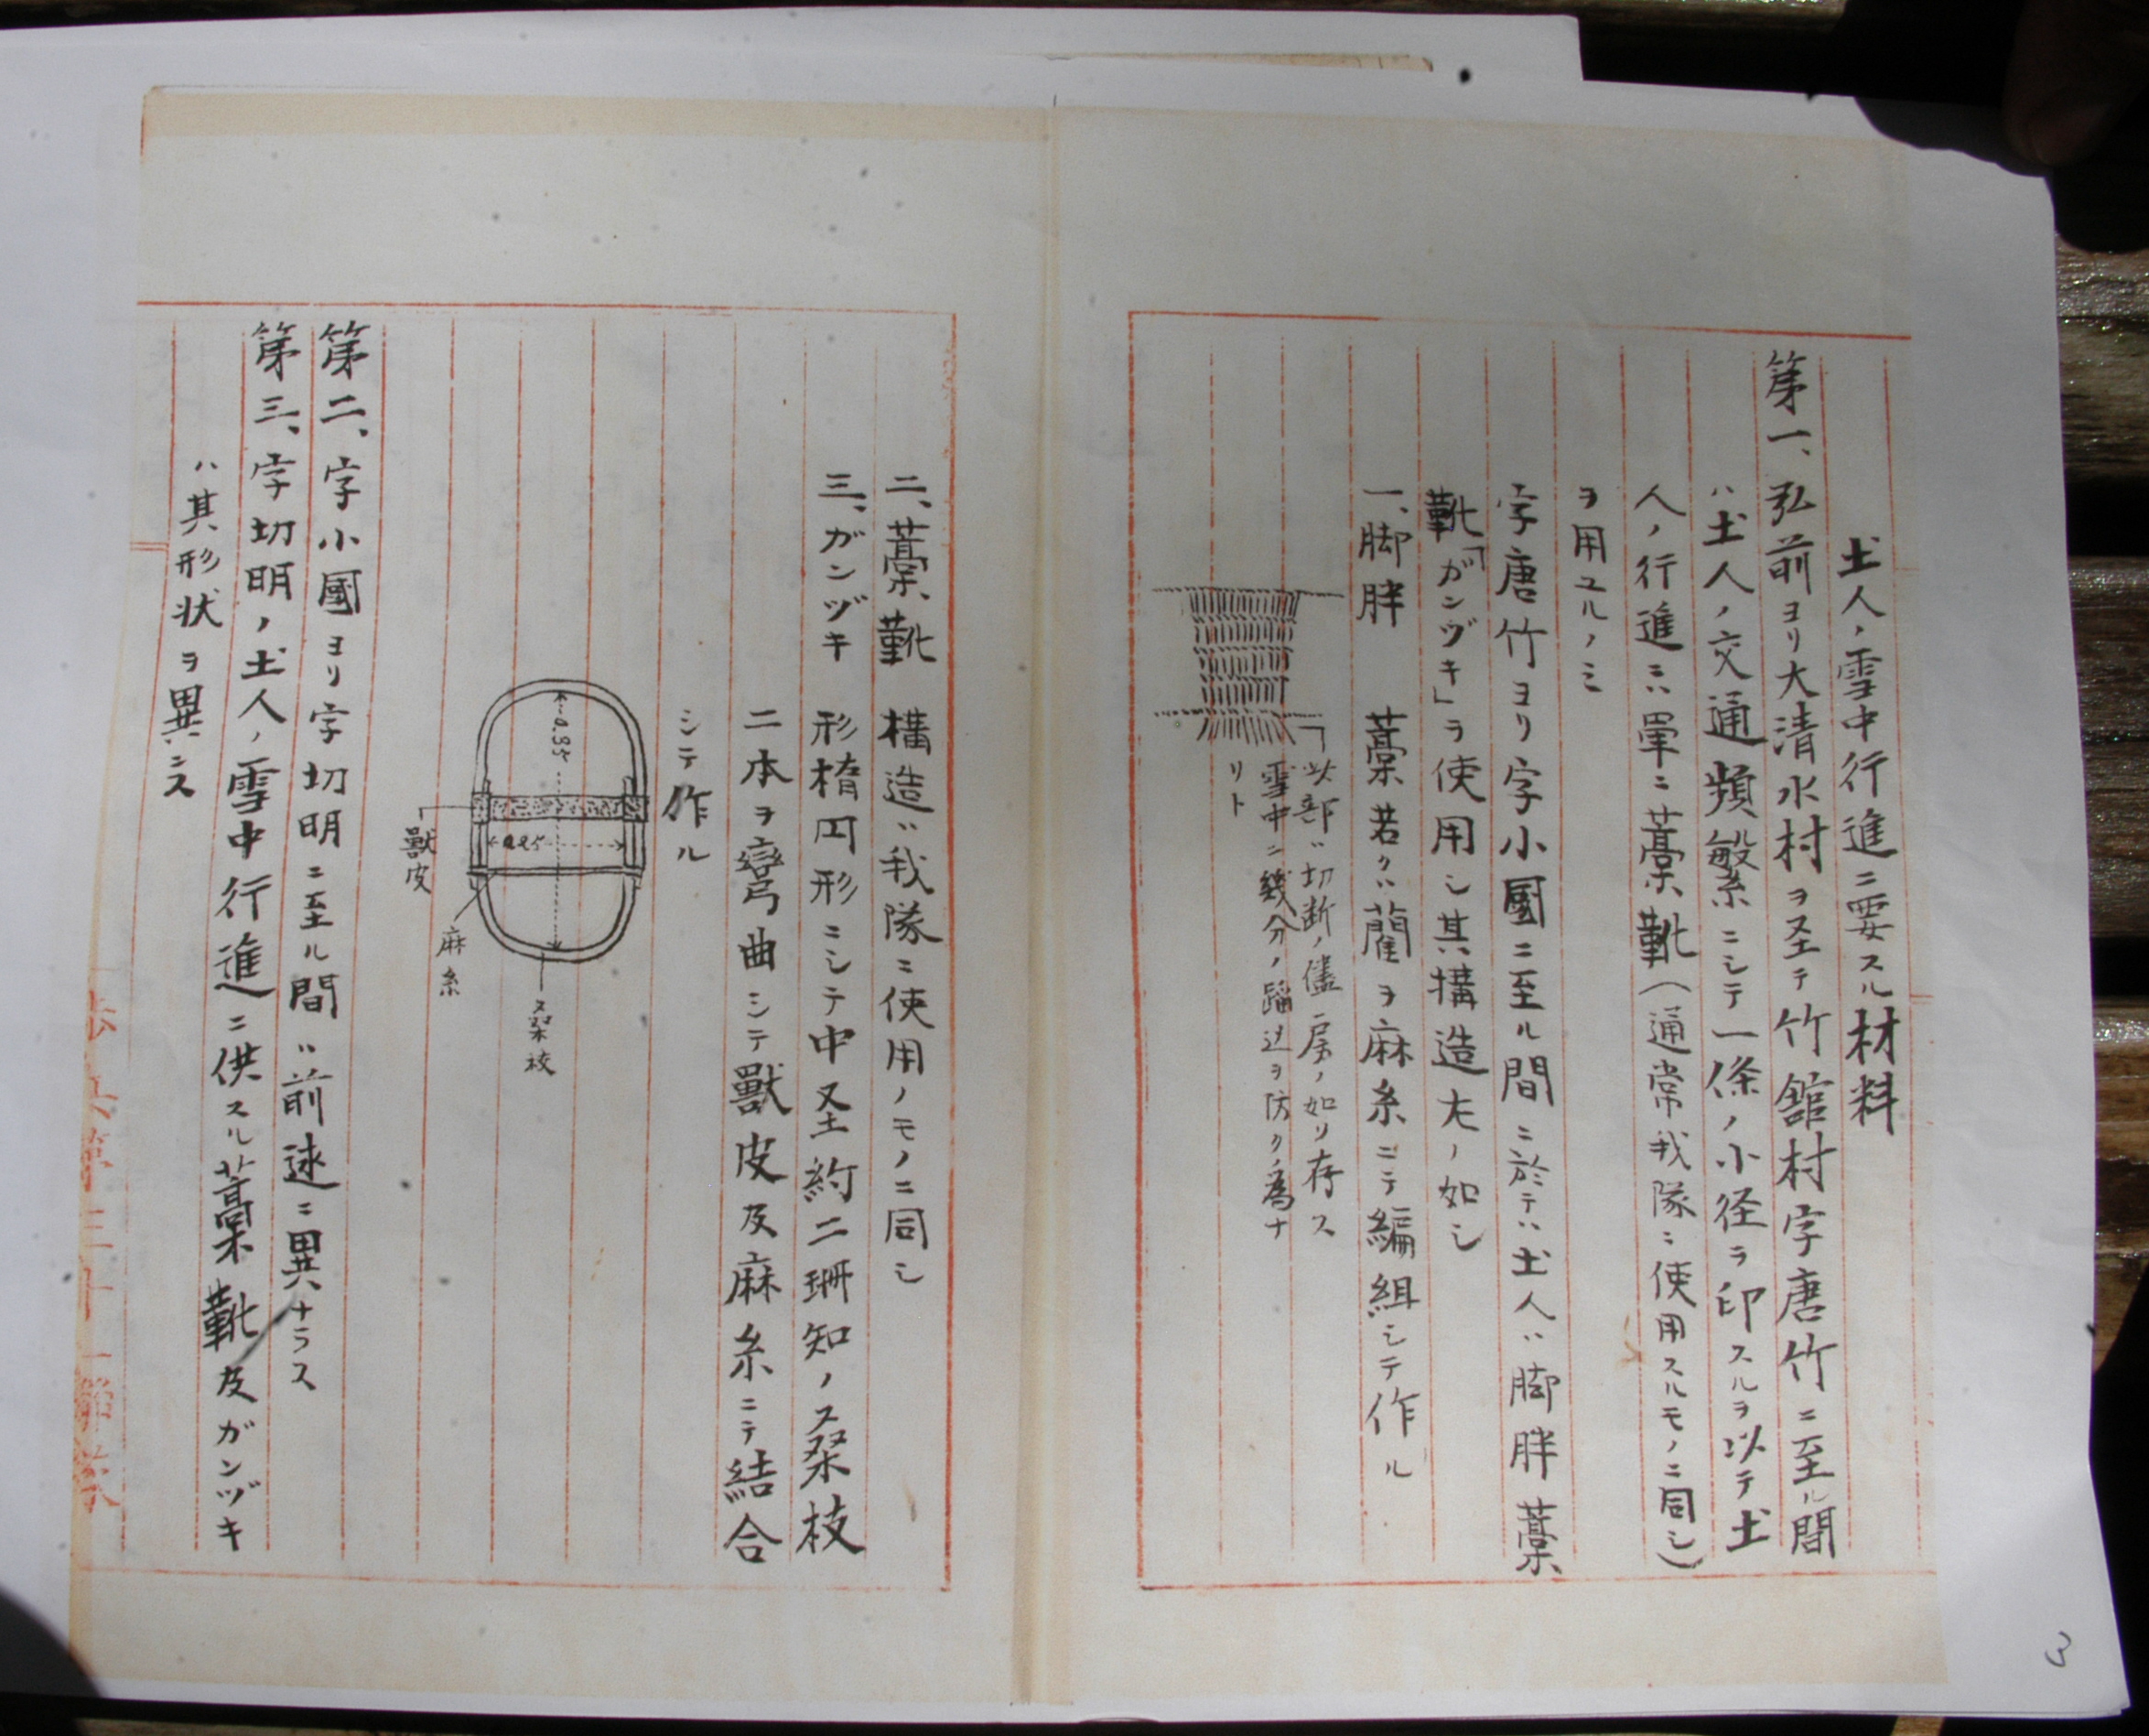 土人ノ雪中行進ニ要スル材料
第一、弘前ヨリ大清水村ヲ圣テ竹舘村字唐竹ニ至ル間
ハ土人ノ交通頻繁ニシテ一條ノ小径ヲ印スルヲ以テ土
人ノ行進ニハ單ニ藁靴(通常我隊ニ使用スルモノニ同シ)
ヲ用ユルノミ
字唐竹ヨリ字小國ニ至ル間ニ於テハ土人ハ脚胖藁
靴「ガンヅキ」ヲ使用シ其構造左ノ如シ
一、脚胖 藁若クハ藺ヲ麻糸ニテ編組シテ作ル
此部ハ切断ノ儘房ノ如ク存ス
雪中ニ幾分ノ蹈込ヲ防クノ為ナ
リト
二、藁靴 構造ハ我隊ニ使用ノモノニ同シ
三、ガンヅキ 形楕円形ニシテ中圣約二珊知ノ桑枝
二本ヲ彎曲シテ獸皮及麻糸ニテ結合
シテ作ル
0.35
0.25
獸皮
麻糸
桑枝
第二、字小國ヨリ字切明ニ至ル間ハ前述ニ異ナラス
第三、字切明ノ土人ノ雪中行進ニ供スル藁靴及ガンヅキ
ハ其形状ヲ異ニス
歩兵第三十一聯隊
3